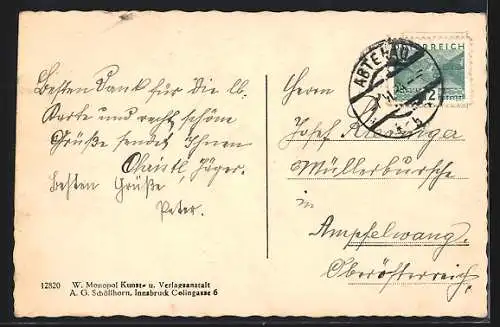 Besten Dank für die lb.
Karte und recht schöne
Grüße sendet Ihnen
Christl Jäger.
besten Grüße
Peter.
12820 W. Monopol Kunst- u. Verlagsanstalt
A. G. Schöllhorn, Innsbruck Colingasse 6
ABTENAU
ÖSTERREICH
12
Herrn
Josef
Müllerbursche
in
Ampfelwang.
Oberösterreich.